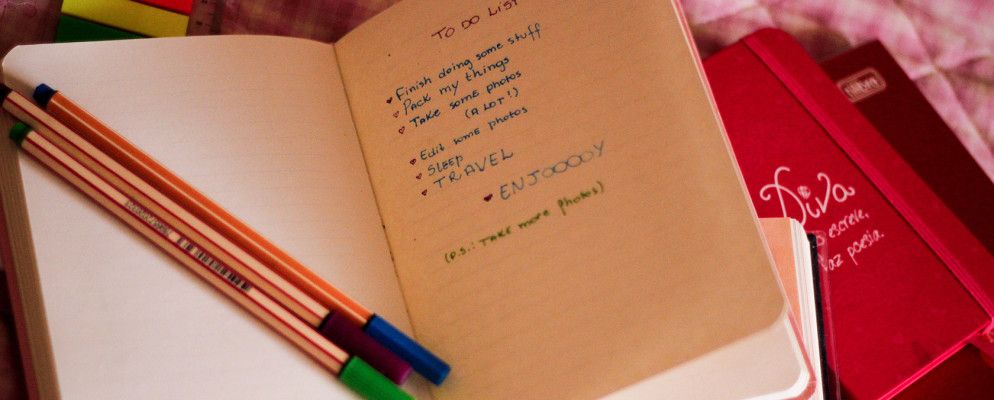 TO DO LIST
Finish doing some stuff
PACK my things
TAKE some photos
(A LOT!)
Edit some photos
SLEEP
TRAVEL
ENJOOOOY
(p.s.: TAKE more photos)
Diva
escreve,
faz poesia.